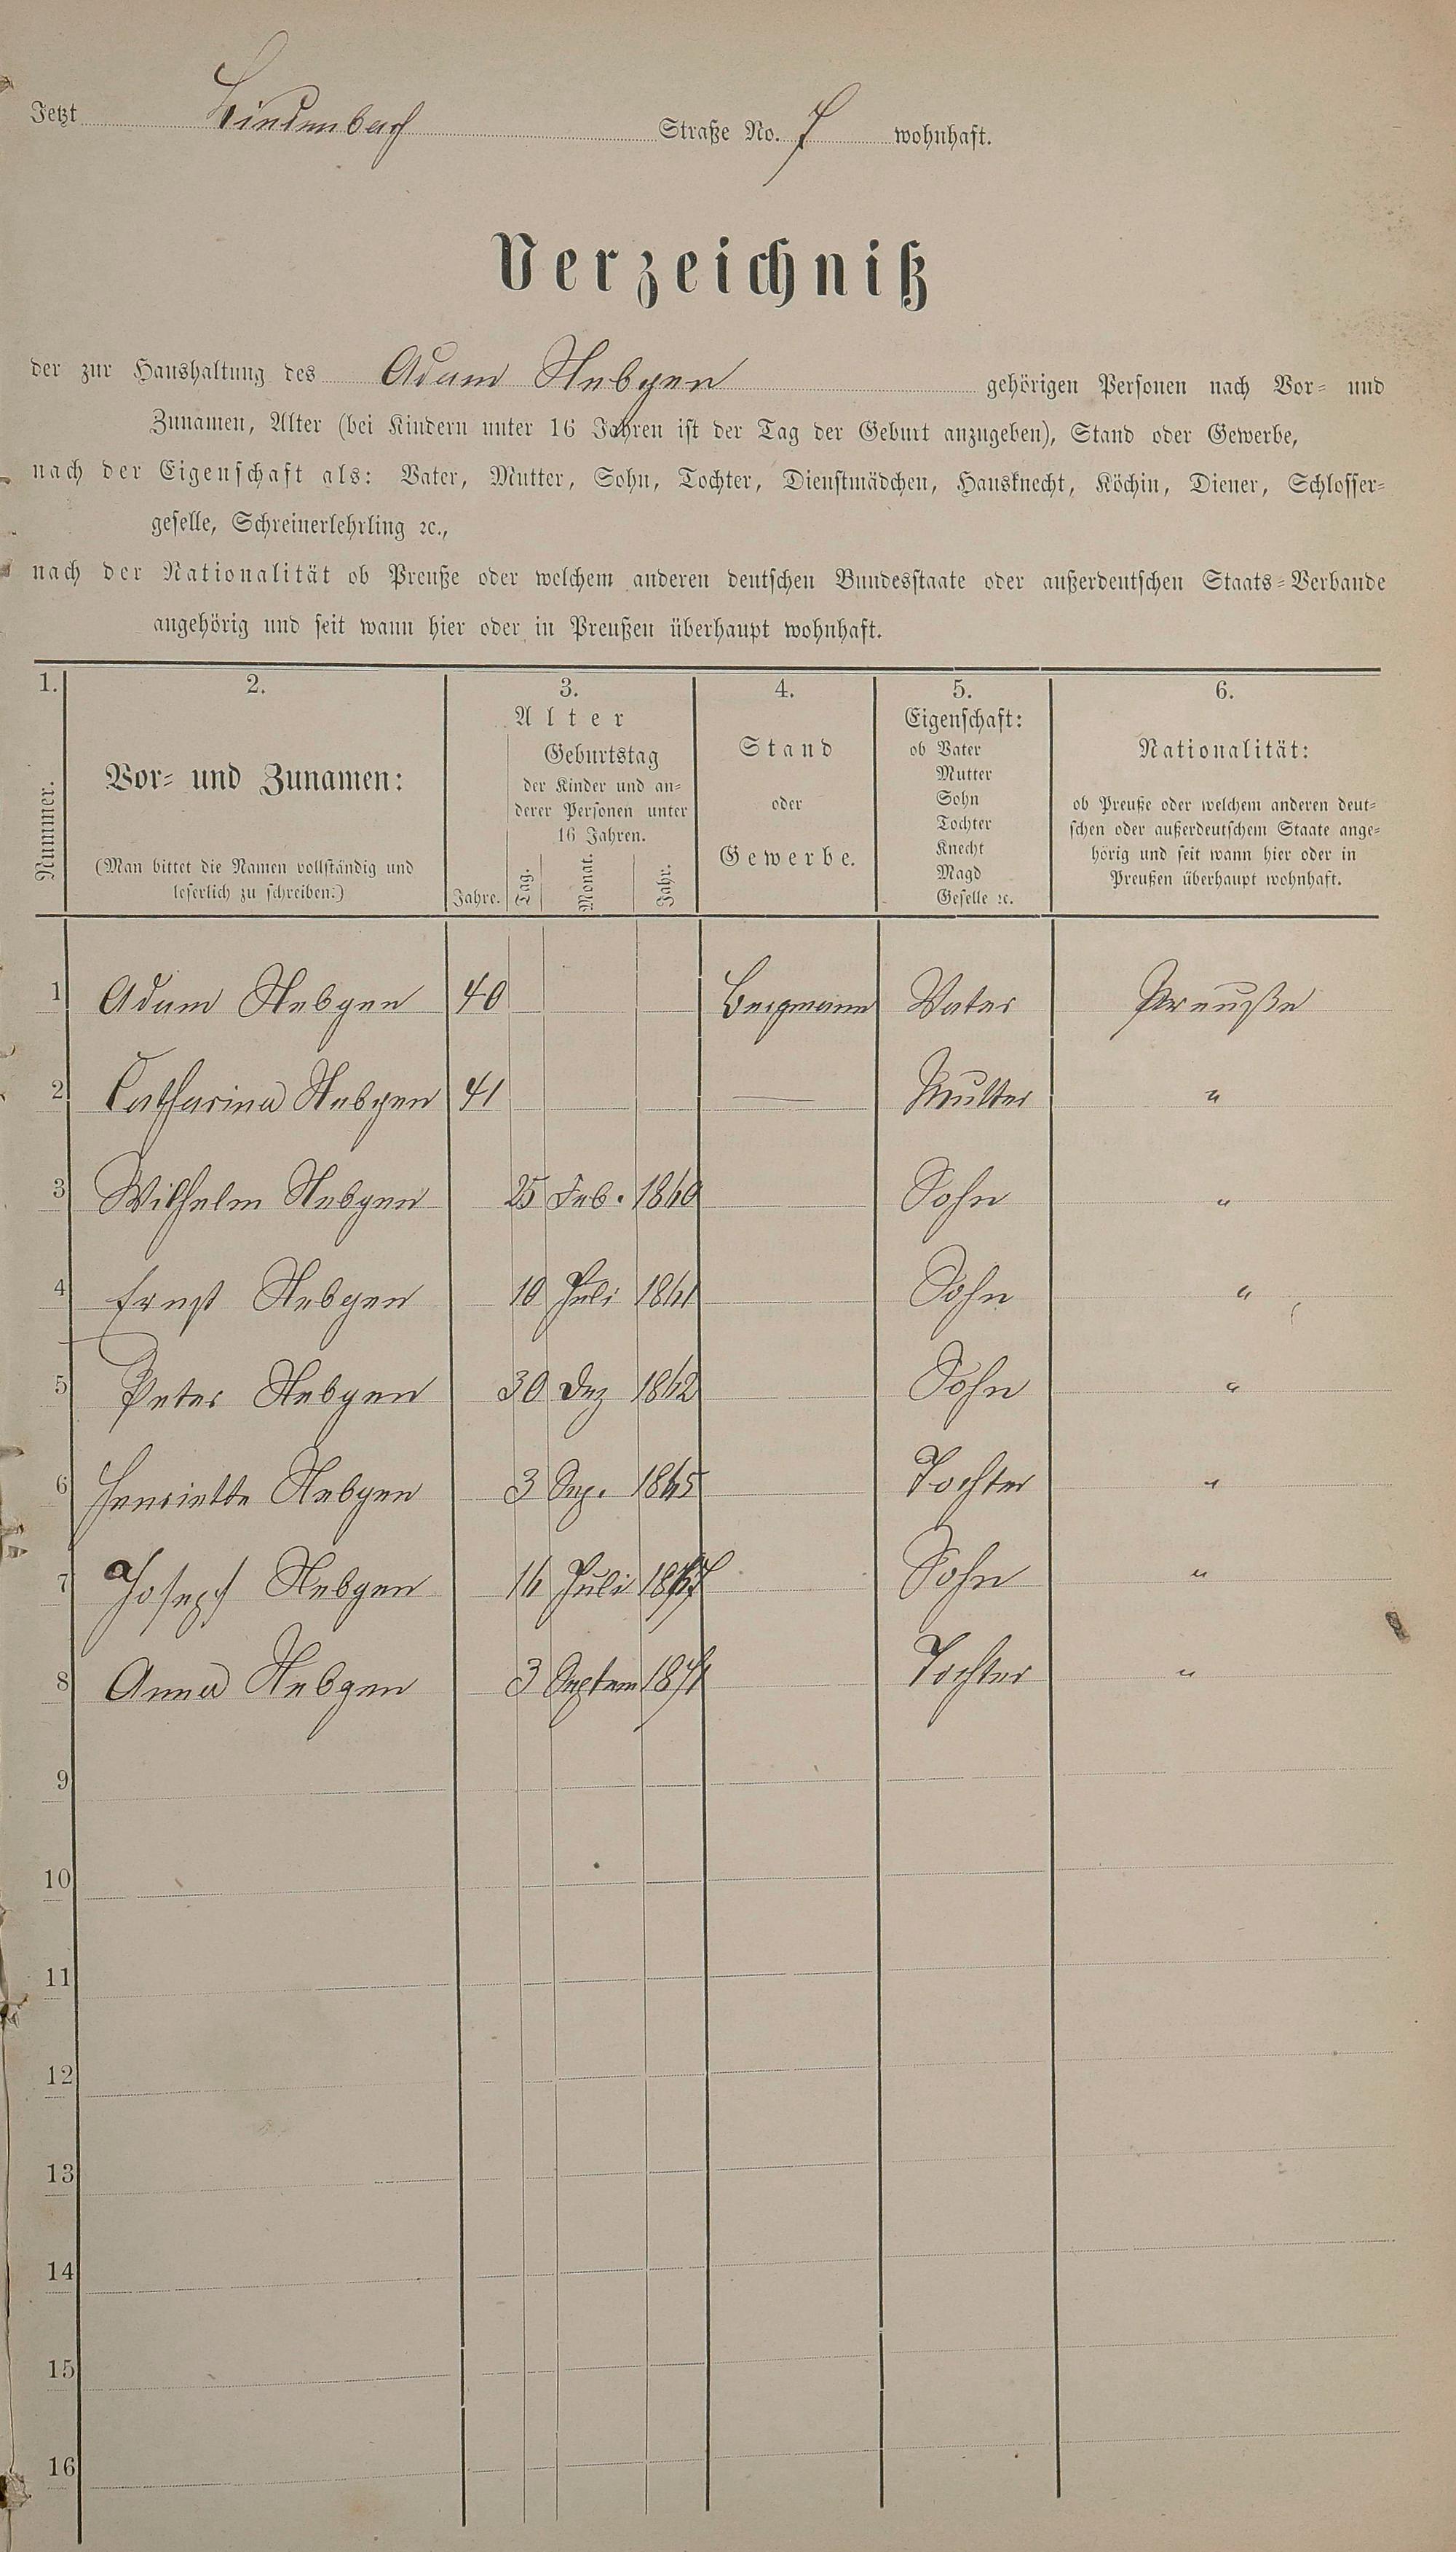 Jetzt Lindenbach Straße No. 7 wohnhaft.
Verzeichniß
der zur Haushaltung des Adam Hebgen gehörigen Personen nach Vor- und
Zunamen, Alter (bei Kindern unter 16 Jahren ist der Tag der Geburt anzugeben), Stand oder Gewerbe,
nach der Eigenschaft als: Vater, Mutter, Sohn, Tochter, Dienstmädchen, Hausknecht, Köchin, Diener, Schlosser-
geselle, Schreinerlehrling ꝛc.,
nach der Nationalität ob Preuße oder welchem anderen deutschen Bundesstaate oder außerdeutschen Staats-Verbande
angehörig und seit wann hier oder in Preußen überhaupt wohnhaft.
1. 2. 3. 4. 5. 6.
Nummer.
Vor- und Zunamen:
(Man bittet die Namen vollständig und
leserlich zu schreiben.)
Alter
Jahre.
Geburtstag
der Kinder und an-
derer Personen unter
16 Jahren.
Tag. Monat. Jahr.
Stand
oder
Gewerbe.
Eigenschaft:
ob Vater
Mutter
Sohn
Tochter
Knecht
Magd
Geselle ꝛc.
Nationalität:
ob Preuße oder welchem anderen deut-
schen oder außerdeutschem Staate ange-
hörig und seit wann hier oder in
Preußen überhaupt wohnhaft.
1 Adam Hebgen 40 Bergmann Vater Preuße
2 Catharina Hebgen 41 — Mutter "
3 Wilhelm Hebgen 25 Feb. 1860 Sohn "
4 Ernst Hebgen 10 Juli 1861 Sohn "
5 Peter Hebgen 30 Dez 1862 Sohn "
6 Henriette Hebgen 3 Sep. 1865 Tochter "
7 Joseph Hebgen 16 Juli Sohn "
8 Anna Hebgen 3 Septem 1871 Tochter "
9
10
11
12
13
14
15
16